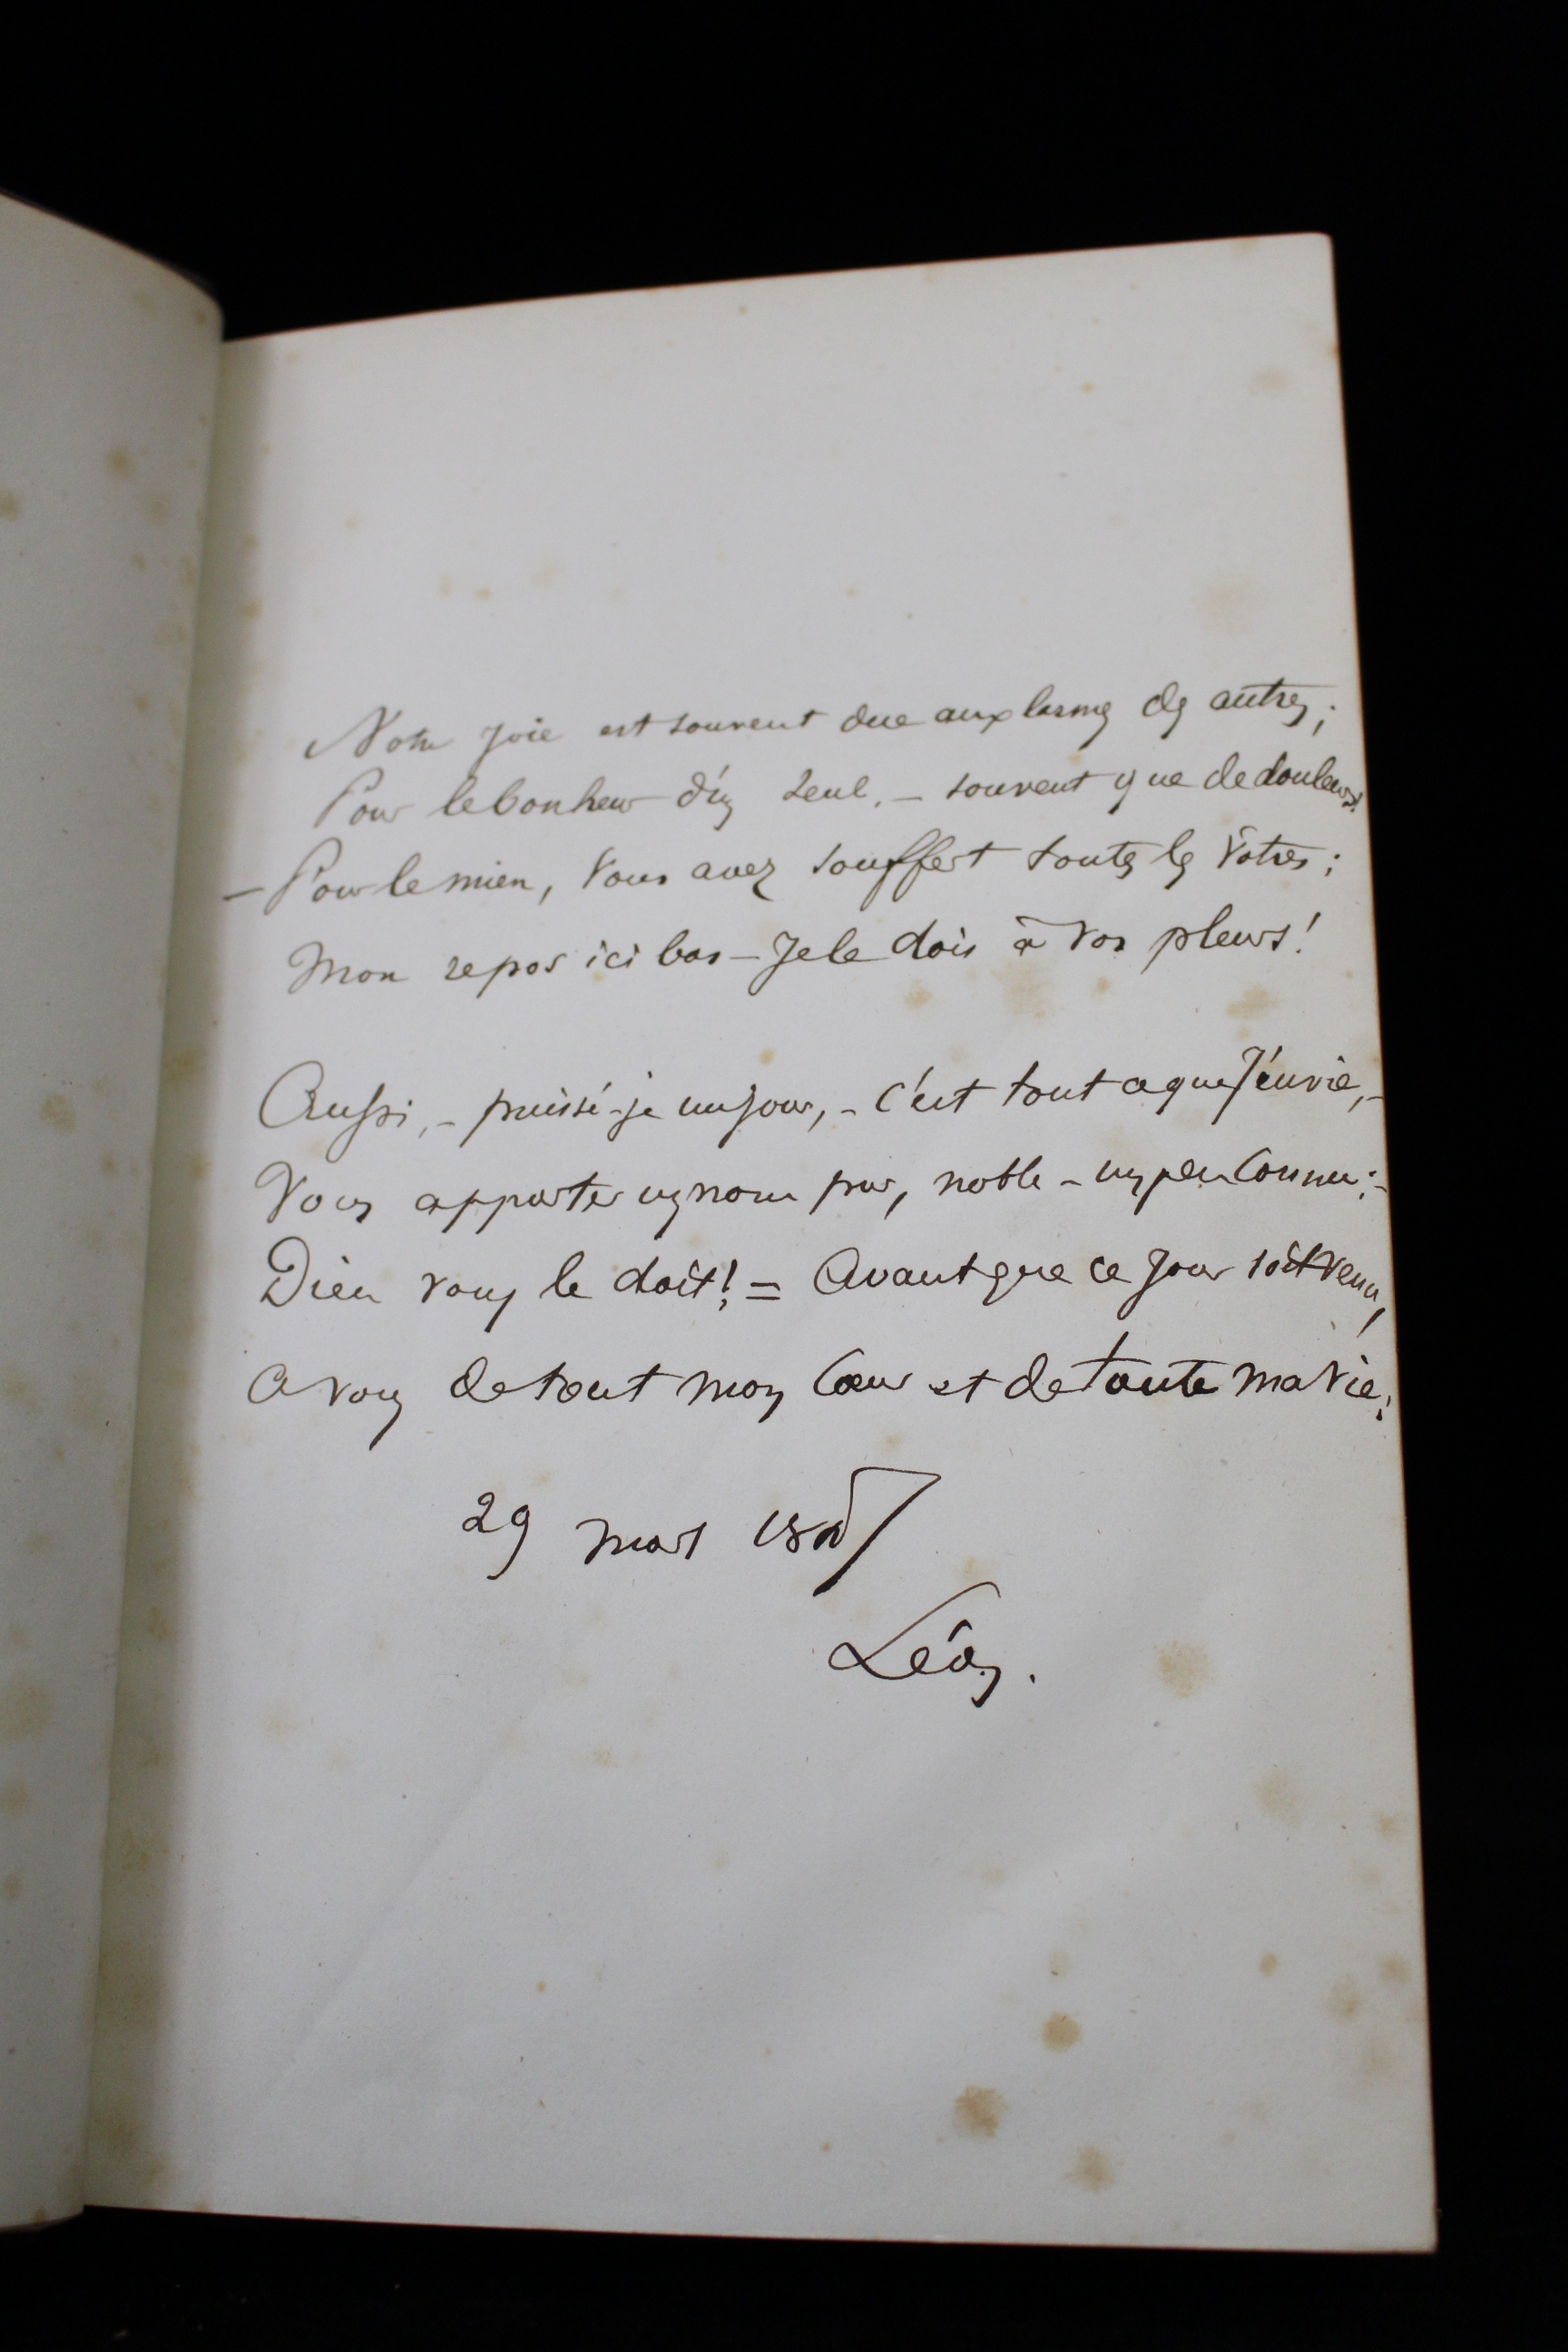 Notre joie est souvent due aux larmes des autres;
Pour le bonheur d'un seul, – souvent que de douleurs!
– Pour le mien, Vous avez souffert toutes les Vôtres;
Mon repos ici bas – Je le dois à Vos pleurs!
Aussi, – puissé-je un jour, – c'est tout ce que J'envie, –
Vous apporter un nom pur, noble – un peu Connu: –
Dieu vous le doit! = Avant que ce Jour soit venu,
A vous de tout mon Cœur et de toute ma Vie;
29 mars 1857
Léon.